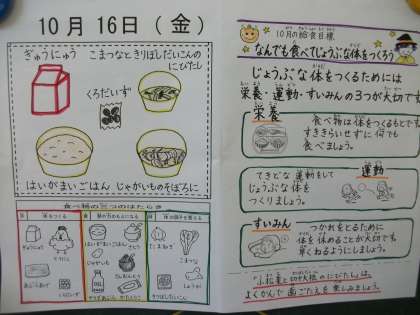 10月16日(金)
ぎゅうにゅう
こまつなときりぼしだいこんの
にびたし
くろだいず
はいがまいごはん
じゃがいものそぼろに
食べ物の三つのはたらき
ぎゅうにゅう
とりにく
はいがまいごはん
さとう
じゃがいも
でんぷん
たまねぎ
こまつな
しょうが
10月の給食目標
なんでも食べてじょうぶな体をつくろう
じょうぶな体をつくるためには
栄養・運動・すいみんの3つが大切です
栄養
食べ物は体をつくるもとです
すききらいせずに何でも
食べましょう。
運動
てきどな運動をして
じょうぶな体を
つくりましょう。
すいみん
つかれをとるために
体を休めることが大切です
早くねるようにしましょう。
「小松菜と切干大根のにびたし」は、
よくかんで歯ごたえを楽しみましょう。